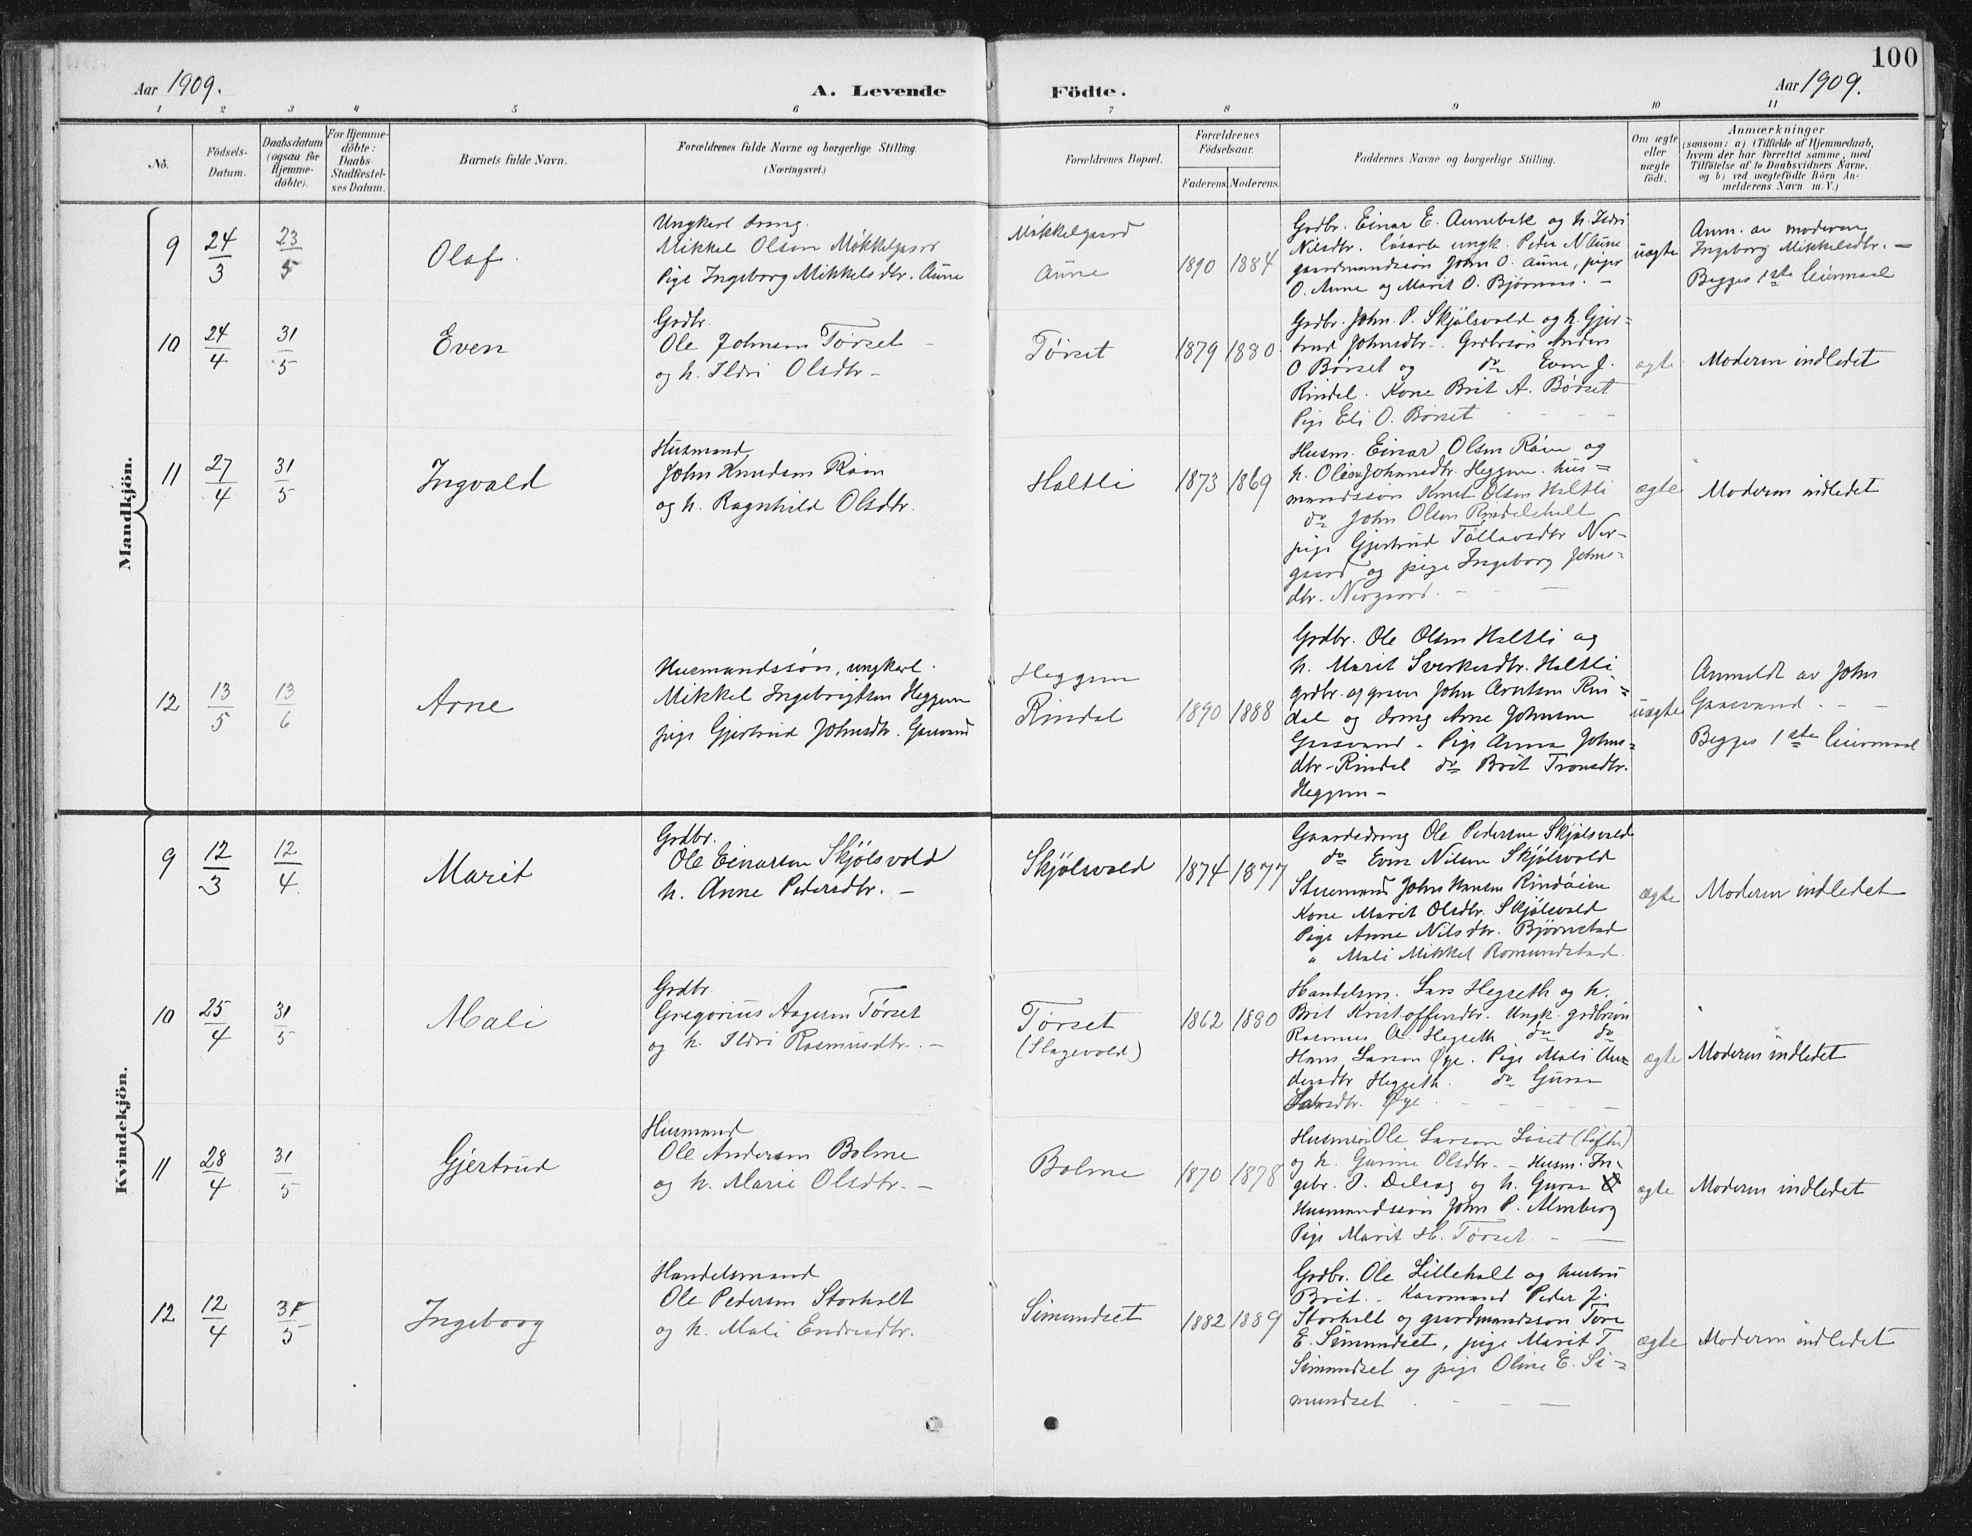 100
Aar 1909.
A. Levende
Födte.
Aar 1909.
1 2 3 4 5 6 7 8 9 10 11
No.
Födsels-
Datum.
Daabsdatum
(ogsaa for
Hjemme-
döbte).
For Hjemme-
döbte:
Daabs-
Stadfæstel-
ses Datum.
Barnets fulde Navn.
Forældrenes fulde Navne og borgerlige Stilling.
(Næringsvei.)
Forældrenes Bopæl.
Forældrenes
Födselsaar.
Faderens. Moderens.
Faddernes Navne og borgerlige Stilling.
Om ægte
eller
uægte
født.
Anmærkninger
(saasom: a) i Tilfælde af Hjemmedaab,
hvem der har forrettet samme, med
Tilföielse af to Daabsvidners Navne.
og b) ved uægtefödte Börn An-
melderens Navn m. V.)
Mandkjön.
9
24/3
23/5
Olaf.
Ungkarl dreng.
Mikkel Olsen Møkkelgaard
Pige Ingeborg Mikkelsdtr. Aune
Møkkelgaard
Aune
1890 1884
Grdbr. Einar E. Aunebak og h. Ildri
Nilsdtr. ungk. Peder N Aune
gaardmandssøn John O. Aune, piger
O. Aune og Marit O. Bjørnaas. –
uægte
Anm. av moderen
Ingeborg Mikkelsdtr. –
Begges 1ste leiermaal
10
24/4
31/5
Even
Grdbr.
Ole Johnsen Tørset –
og h. Ildri Olsdtr –
Tørset
1879 1880
Grdbr. John P. Skjølsvold og h. Gjer-
trud Johnsdtr. Grdbrsøn Anders
O Børset og do Even J.
Rindal. Kone Brit A. Børset
Pige Eli O. Børset
ægte
Moderen indledet
11
27/4
31/5
Ingvald
Husmand
John Knudsen Røen
og h. Ragnhild Olsdtr.
Holtli
1873 1869
Husm. Einar Olsen Røen og
h. Oline Johansdtr. Heggem. hus=
mandssøn Knut Olsen Holtli
do John Olsen Rindalsholt
pige Gjertrud Tøllavsdtr Nor-
gaard og pige Ingeborg Johns-
dtr. Norgaard. –
ægte
Moderen indledet
12
13/5
13/6
Arne
Husmandssøn, ungkarl.
Mikkel Ingebrigtsen Heggem
pige Gjertrud Johnsdtr. Gaasvand
Heggem
Rindal
1890 1888
Grdbr. Ole Olsen Holtli og
h. Marit Sverkesdtr. Holtli
grdbr. og graver John Arntsen Rin=
dal og dreng Arne Johnsen
Gaasvand – Pige Anna Johns=
dtr – Rindal do Brit Tronsdtr.
Heggem –
uægte
Anmeldt av John
Gaasvand. – –
Begges 1ste leiermaal
Kvindekjön.
9
12/3
12/4
Marit
Grdbr.
Ole Einarsen Skjølsvold
h. Anne Pedersdtr. –
Skjølsvold
1874 1877
Gaardsdreng Ole Pedersen Skjølsvold
do Even Nilsen Skjølsvold
Stuemand John Hansen Rindøien
Kone Marit Olsdtr. Skjølsvold
Pige Anne Nilsdtr. Bjørnstad
" Mali Mikkel Romundstad.
ægte
Moderen indledet
10
25/4
31/5
Mali
Grdbr.
Gregorius Aagesen Tørset
og h. Ildri Rasmusdtr. –
Tørset
(Slagevold)
1862 1880
Handelsm. Lars Hegseth og h.
Brit Kristoffersdtr. Ungk. grdbrsøn
Rasmus A. Hegseth do do
Hans Larsen Øye. Pige Mali An-
dersdtr Hegseth. do Guran
Larsdtr. Øye.
ægte
Moderen indledet
11
28/4
31/5
Gjertrud
Husmand
Ole Andersen Bolme
og h. Marie Olsdtr. –
Bolme
1870 1878
Husmsøn Ole Larsen Løset (Løften)
og h. Gurine Olsdtr. – Husm. In-
gebr. J. Delsag og h. Guran
Husmandssøn John P. Almberg
Pige Marit H. Tørset. –
ægte
Moderen indledet
12
12/4
31/5
Ingeborg
Handelsmand
Ole Pedersen Storholt
og h. Mali Endresdtr.
Simundset
1882 1889
Grdbr. Ole Lilleholt og hustru
Brit. – Kaarmand Peder J.
Storholt og gaardmandssøn Tore
E. Simundset, pige Marit T.
Simundset og pige Oline E. Si=
mundset
ægte
Moderen indledet